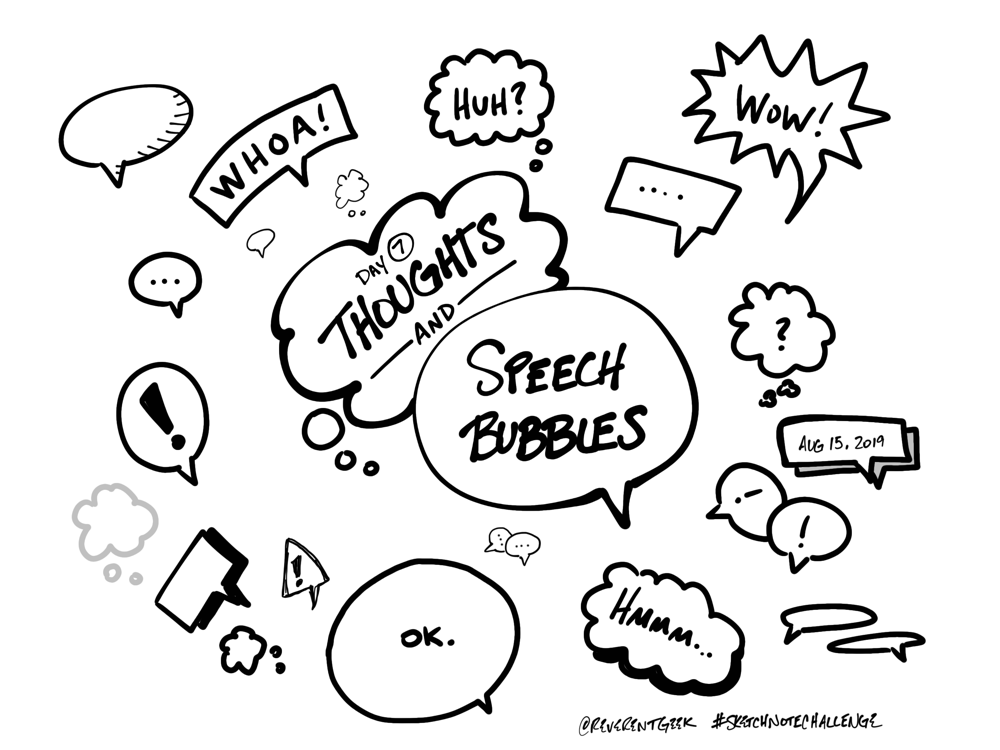 WHOA!
HUH?
WOW!
....
...
DAY 7
THOUGHTS
AND
SPEECH
BUBBLES
?
!
AUG 15, 2019
!
!
!
...
...
OK.
HMMM...
@REVERENTGEEK #SKETCHNOTECHALLENGE